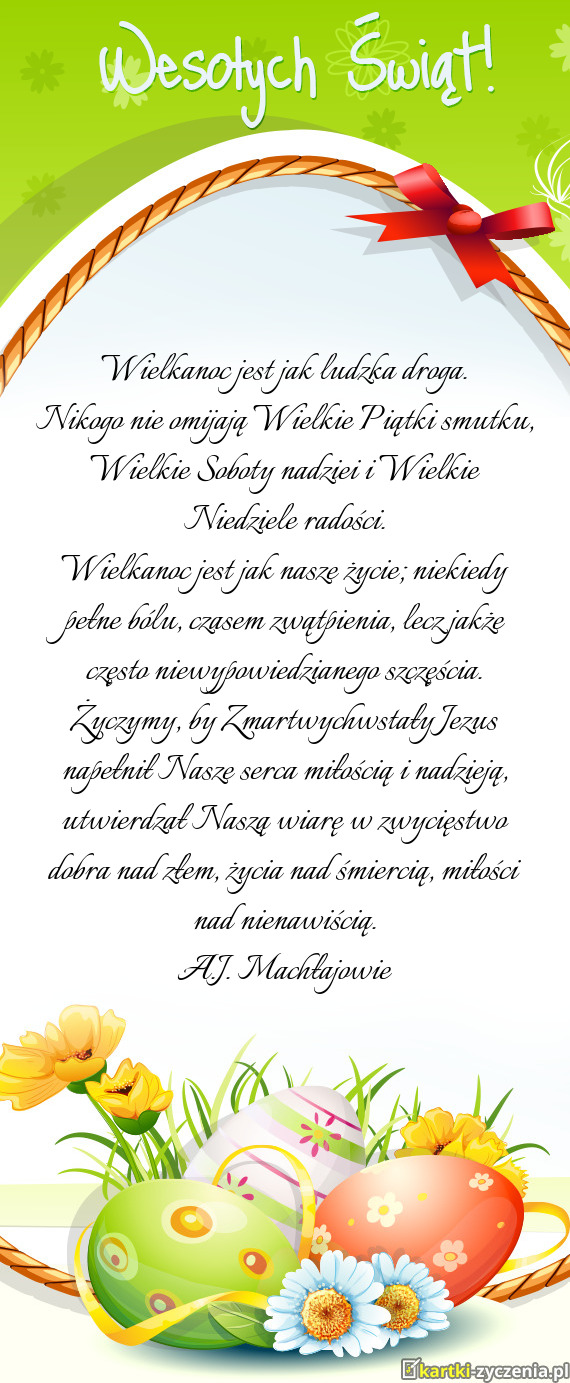 Wesołych Świąt!
Wielkanoc jest jak ludzka droga.
Nikogo nie omijają Wielkie Piątki smutku,
Wielkie Soboty nadziei i Wielkie
Niedziele radości.
Wielkanoc jest jak nasze życie; niekiedy
pełne bólu, czasem zwątpienia, lecz jakże
często niewypowiedzianego szczęścia.
Życzymy, by Zmartwychwstały Jezus
napełnił Nasze serca miłością i nadzieją,
utwierdzał Naszą wiarę w zwycięstwo
dobra nad złem, życia nad śmiercią, miłości
nad nienawiścią.
A.J. Machłajowie
kartki-zyczenia.pl